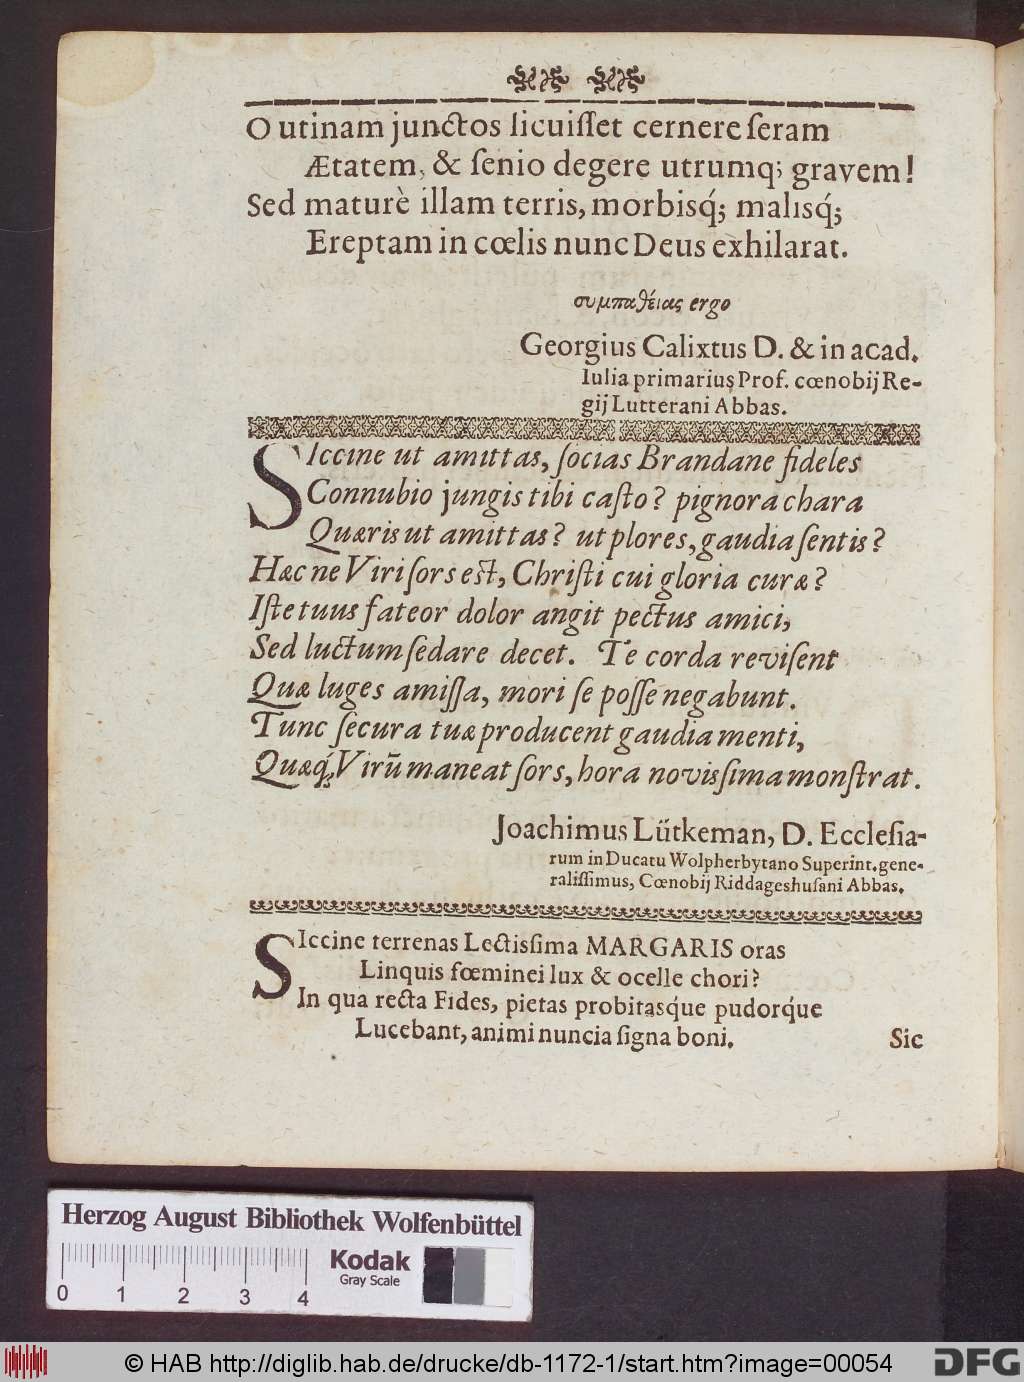 O utinam junctos licuiſſet cernere ſeram
Ætatem, & ſenio degere utrumq; gravem!
Sed maturè illam terris, morbisq́; malisq́;
Ereptam in cœlis nunc Deus exhilarat.
συμπαθείας ergo
Georgius Calixtus D. & in acad.
Iulia primarius Prof. cœnobij Re-
gij Lutterani Abbas.
SIccine ut amittas, ſocias Brandane fideles
Connubio jungis tibi caſto? pignora chara
Quæris ut amittas? ut plores, gaudia ſentis?
Hæc ne Viri ſors eſt, Chriſti cui gloria curæ?
Iſte tuus fateor dolor angit pectus amici,
Sed luctum ſedare decet. Te corda reviſent
Quæ luges amiſſa, mori ſe poſſe negabunt.
Tunc ſecura tuæ producent gaudia menti,
Quæq́; Virū maneat ſors, hora novisſima monſtrat.
Joachimus Lütkeman, D. Eccleſia-
rum in Ducatu Wolpherbytano Superint. gene-
raliſſimus, Cœnobij Riddageshuſani Abbas.
SIccine terrenas Lectisſima MARGARIS oras
Linquis fœminei lux & ocelle chori?
In qua recta Fides, pietas probitasq́ue pudorq́ue
Lucebant, animi nuncia ſigna boni.
Sic
Herzog August Bibliothek Wolfenbüttel
Kodak
Gray Scale
0 1 2 3 4
© HAB http://diglib.hab.de/drucke/db-1172-1/start.htm?image=00054
DFG